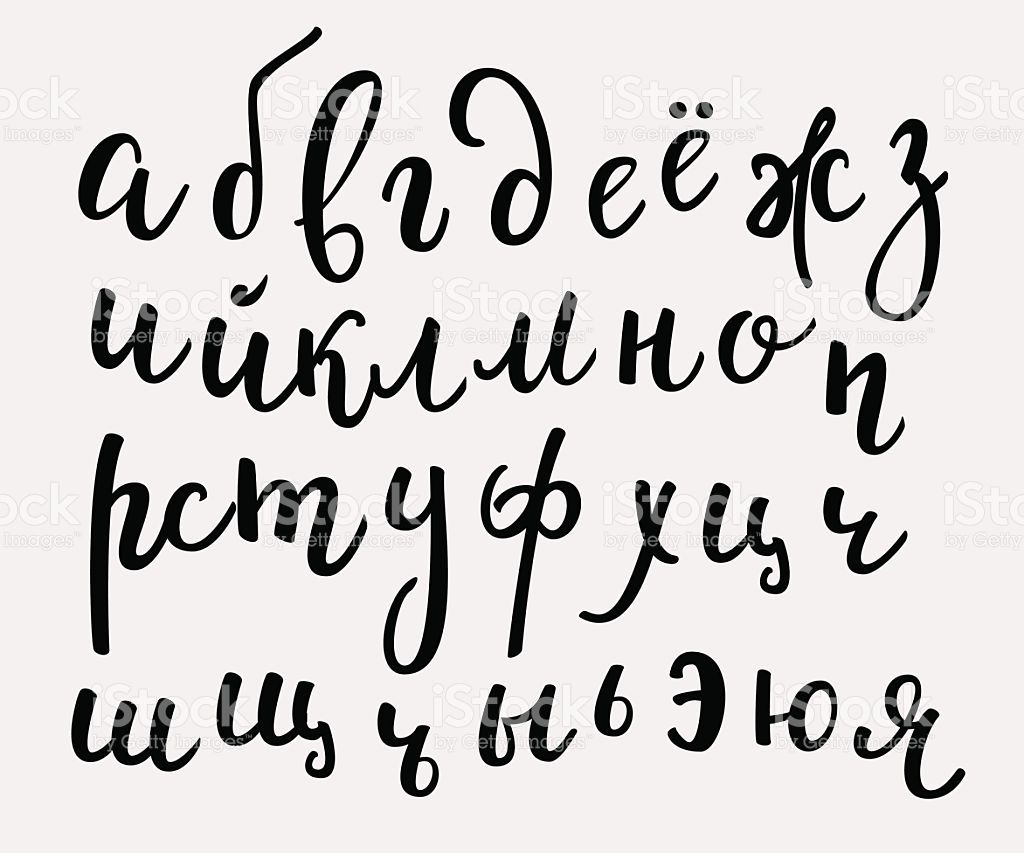 а б в г д е ё ж з
и й к л м н о п
р с т у ф х ц ч
ш щ ъ ы ь э ю я
iStock
by Getty Images™